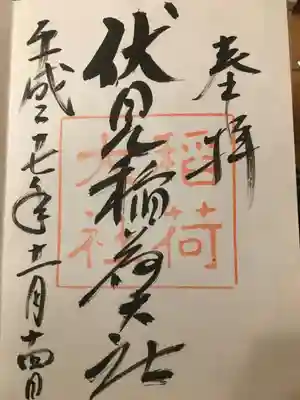 奉拝
伏見稲荷大社
平成二十七年十二月十四日
稲荷
大社